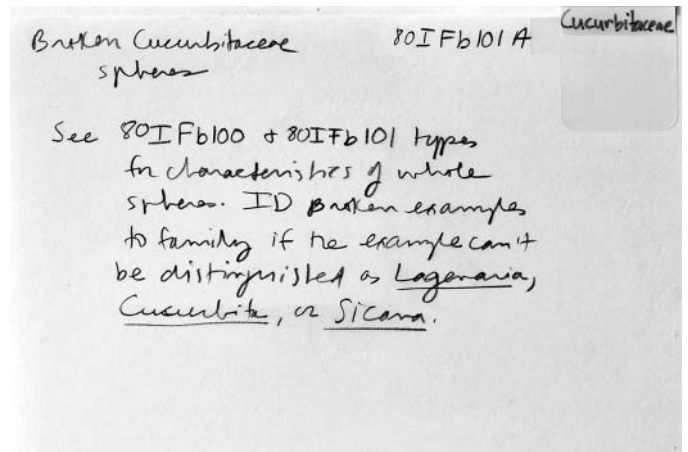 Broken Cucurbitaceae 80IFb101A Cucurbitaceae
spheres
See 80IFb100 + 80IFb101 types
for characteristics of whole
spheres. ID Broken examples
to family if the example can't
be distinguished as Lagenaria,
Cucurbita, or Sicana.